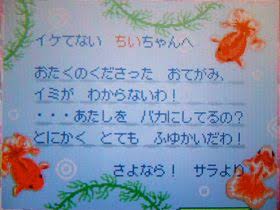 イケてない ちいちゃんへ
おたくのくださった おてがみ、
イミが わからないわ!
・・・あたしを バカにしてるの?
とにかく とても ふゆかいだわ!
さよなら! サラより